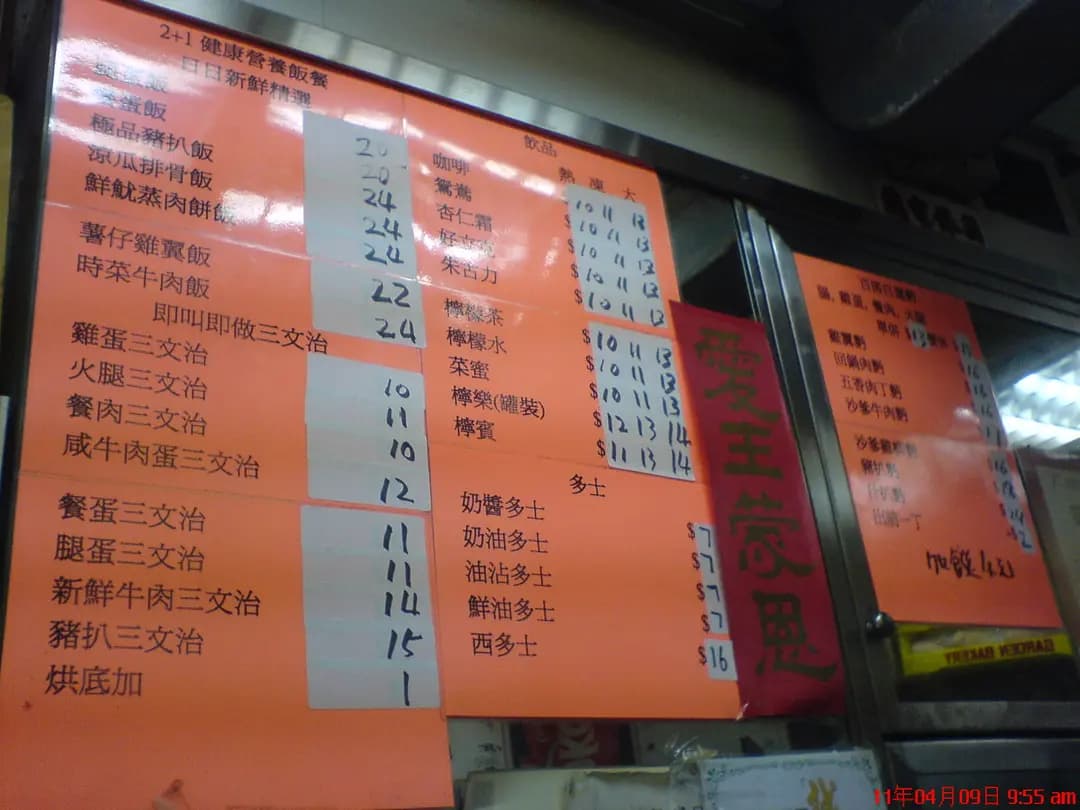 2+1 健康營養飯餐
日日新鮮精選
蛋飯 20
蛋飯 20
極品豬扒飯 24
涼瓜排骨飯 24
鮮魷蒸肉餅飯 24
薯仔雞翼飯 22
時菜牛肉飯 24
即叫即做三文治
雞蛋三文治 10
火腿三文治 11
餐肉三文治 10
咸牛肉蛋三文治 12
餐蛋三文治 11
腿蛋三文治 11
新鮮牛肉三文治 14
豬扒三文治 15
烘底加 1
飲品
熱 凍 大
咖啡 10 11 13
鴛鴦 $10 11 13
杏仁霜 $10 11 13
好立克 $10 11 13
朱古力 $10 11 13
檸檬茶 $10 11 13
檸檬水 $10 11 13
菜蜜 $10 11 13
檸樂(罐裝) $12 13 14
檸賓 $11 13 14
多士
奶醬多士 $7
奶油多士 $7
油沾多士 $7
鮮油多士 $7
西多士 $16
愛主蒙恩
腸, 雞蛋, 餐肉, 火腿
單併 13 雙併
雞翼麵
回鍋肉麵 16
五香肉丁麵 16
沙爹牛肉麵
豬扒麵
出前一丁 $2
GARDEN BAKERY
11年04月09日 9:55 am